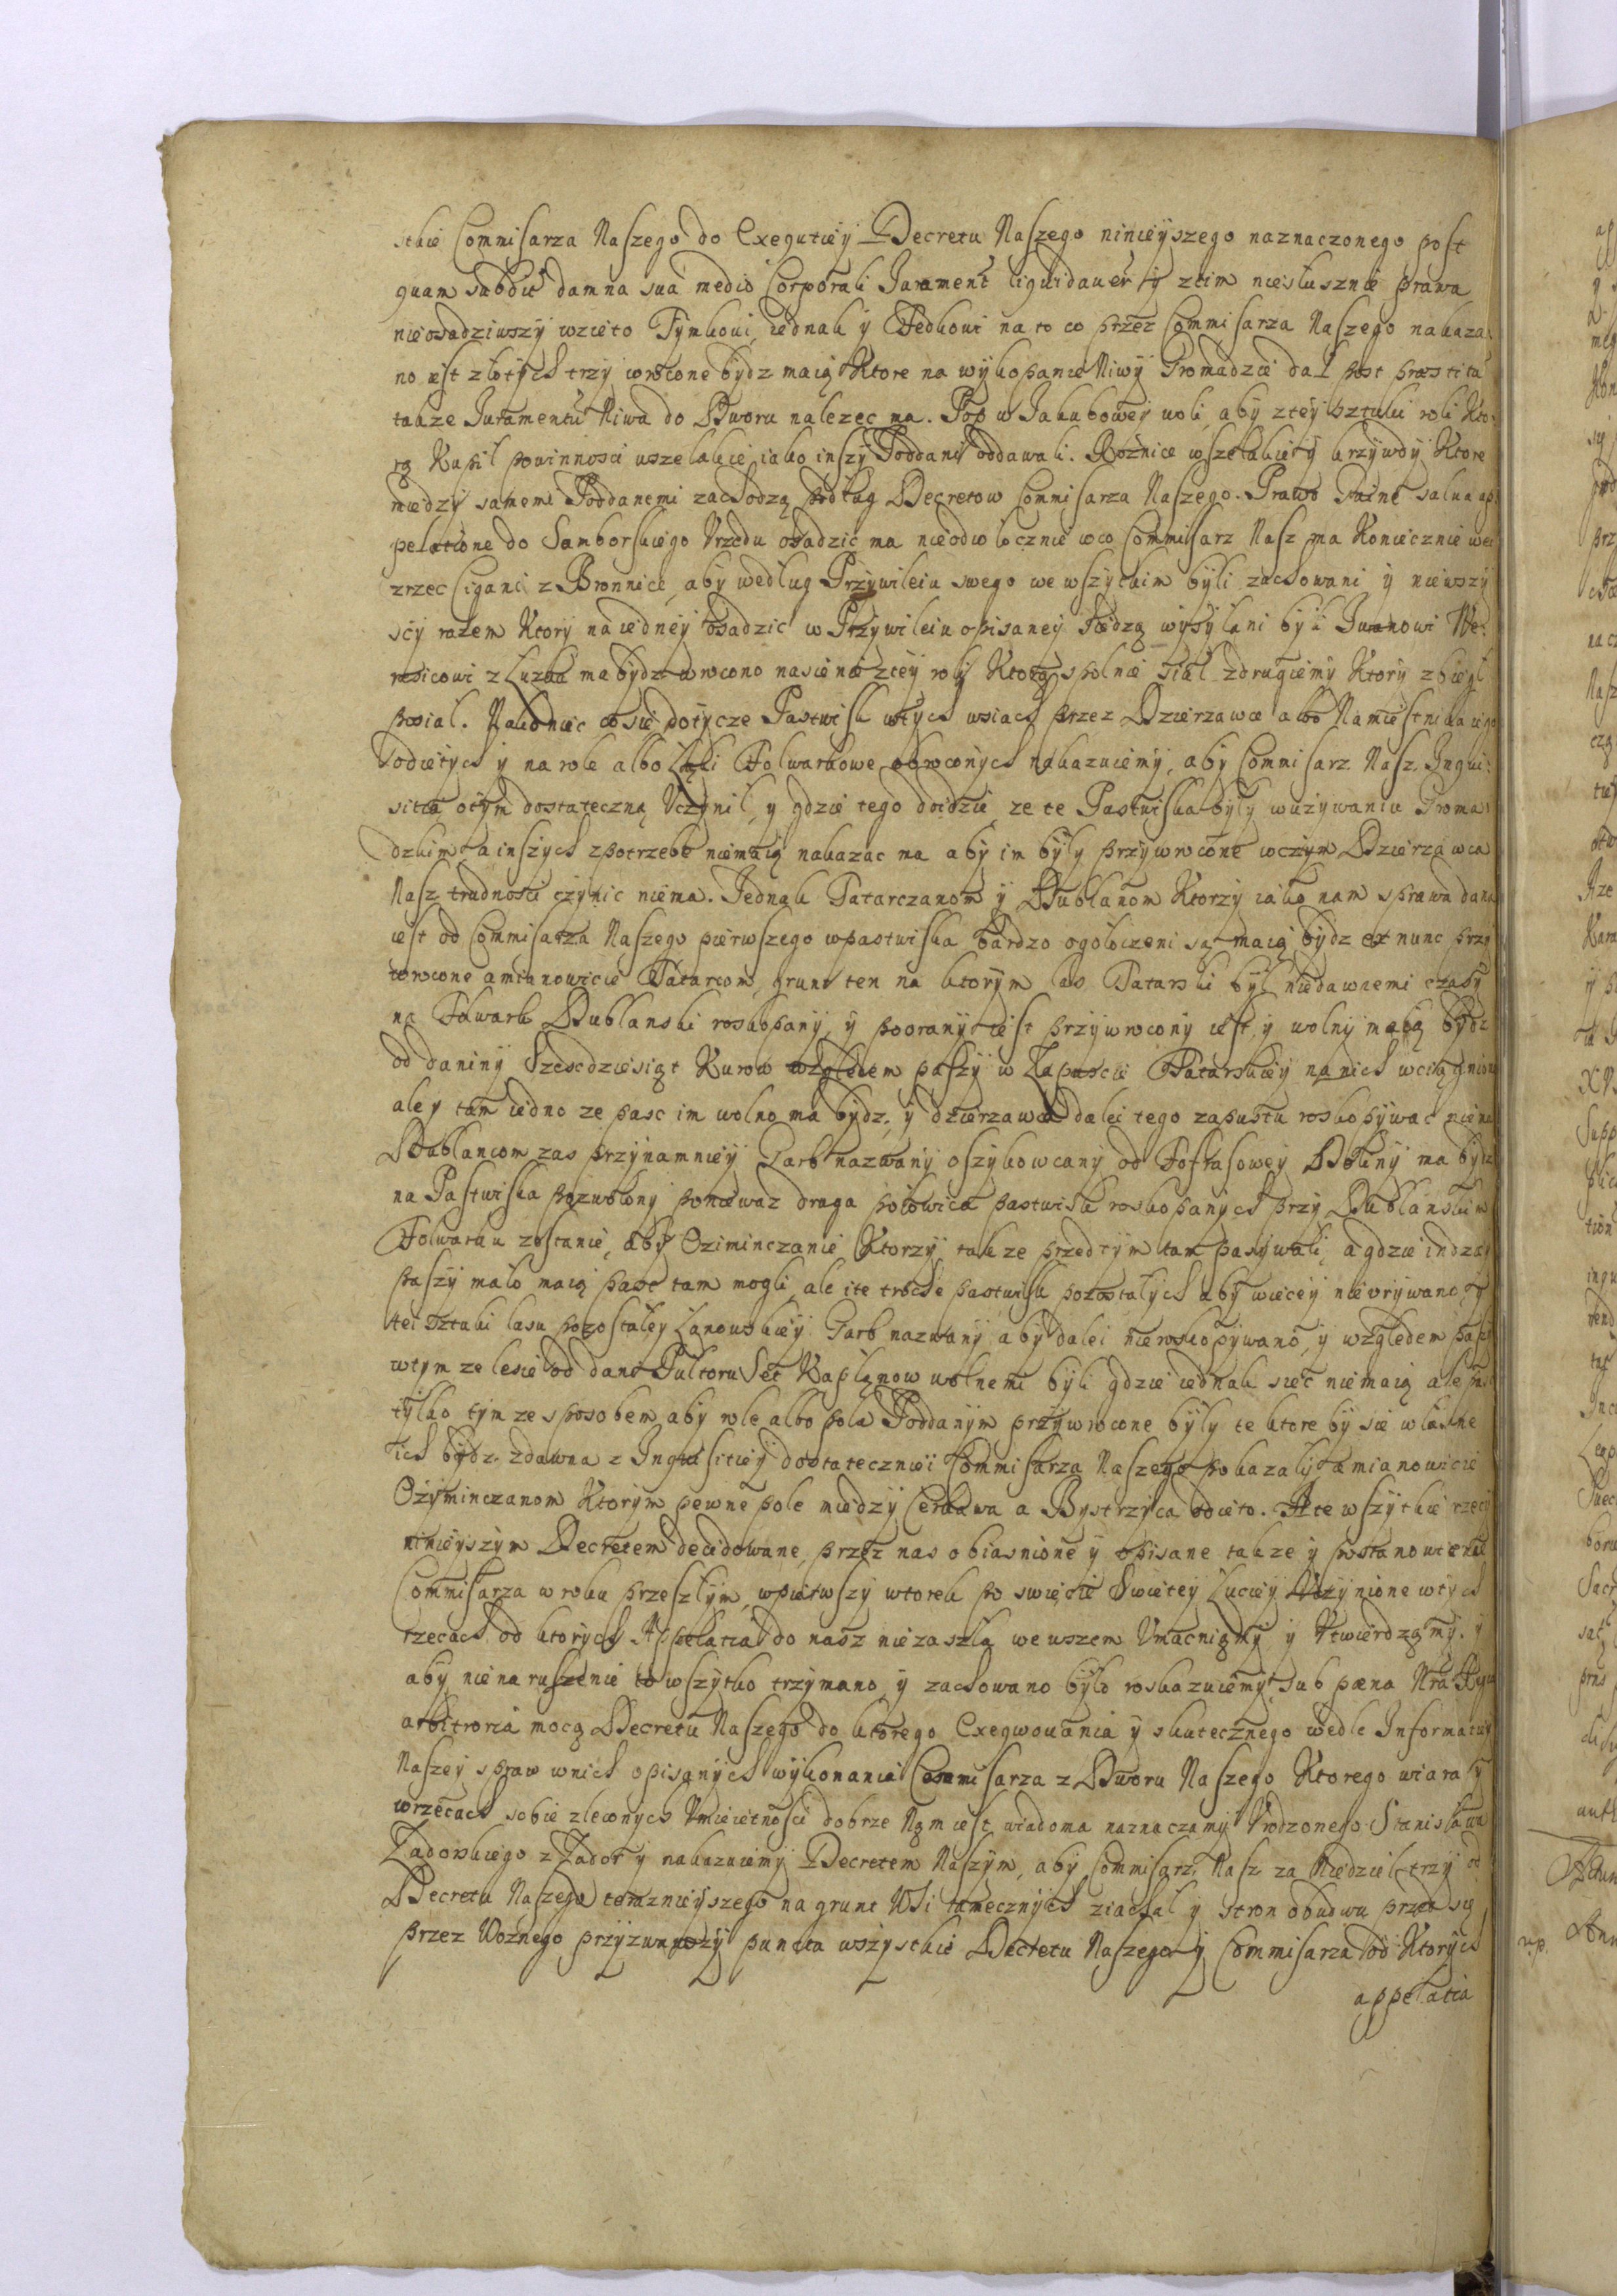 stkie Commisarza Naszego do Exegutiey Decretu Naszego ninieyszego naznaczonego post
quam subditi damna sua medio Corporali Jurament liquidauer y ztim niesłusznie prawa
nieosadziwszy wzieto Tymkowi, iednak y Fedkowi na to co przez Commisarza Naszego nakaza
no iest złotych trzy wrocone bydz maią Ktore na wykopanie Niwy Gromadzie dał post præstitu
takze Juramentu Niwa do Dworu nalezec ma. Pop w Jakubowey woli, aby ztey sztuki roli Kto
rą Kupił powinnosci wszelakie iako inszy Poddani oddawali. Roznice wszelakie y krzywdy Ktore
miedzy samemi Poddanemi zachodzą podług Decretow Commisarza Naszego. Prawo salua ap
pelatione do Samborskiego Vrzedu osadzic ma nieodwłocznie wco Commisarz Nasz ma Koniecznie we
zrzec Cigani z Bronnice, aby według Przywileiu swego we wszytkim byli zachowani y niewszy
scy razem Ktory na iedney osadzic w Przywileiu opisaney wysyłani byli Iwanowi
z Luzka ma bydz wrocono nasienie ztey roli Ktorą społnie siał zdrugiemy Ktory zbiegł
posiał. Nakoniec co sie dotycze Pastwisk wtych wsiach przez Dzierzawce albo Namiestnika iego
odietych y na role albo Łąki Folwarkowe obroconych nakazuiemy, aby Commisarz Nasz Inqui
sitią otym dostateczną Vczynił, y gdzie tego doidzie, ze te Pastwiska były wuzywaniu Groma
dzkim a inszych zpotrzebe niemaią nakazac ma aby im były przywrocone wczym Dzierzawca
Nasz trudnosci czynic niema. Jednak Tatarczanom y Dublanom Ktorzy iako nam sprawa dana
iest od Commisarza Naszego pierwszego wpastwiska bardzo ogołoczeni są maią bydz ex nunc przy
wrocone amianowicie Tatarcom, grunt ten na ktorym las Tatarski był niedawnemi czasy
na Folwark Dublanski roskopany, y poorany iest przywrocony iest y wolny maią bydz
od daniny Szescdziesiąt Kurow względem paszy w Zapuscie Tatarskiey na nich wciągnione
ale y tam iedno ze pasc im wolno ma bydz, y dzierzawca dalei tego zapustu roskopywac niema
Dublancom zas przynamniey Garb nazwany oszykowcany od Doliny ma bydz
na Pastwiska pozwolony poniewaz druga połowica pastwisk roskopanych przy Dublanskim
Folwarku zostanie, aby Oziminczanie Ktorzy takze przedtym tam pasywali, a gdzie indzey
paszy mało maią pasc tam mogli, ale ite troche pastwisk pozostałych aby wiecey nieurywano, y
tei sztuki lasu pozostałey Łanowskiey Garb nazwany aby dalei nieroskopywano, y względem paszy
wtym ze lesie od dani Pułtoru Set Kapłonow wolnemi byli gdzie iednak siec niemaią ale
tylko tym ze sposobem aby role albo pola Poddanym przywrocone były te ktore by sie własne
ich bydz zdawna z Inquisitiey dostateczniei Commisarza Naszego pokazały amianowicie
Ozyminczanom Ktorym pewne pole miedzy Cerkawa a Bystrzyca odieto. A te wszytkie rzeczy
ninieyszym Decretem decidowane, przez nas obiasnione y opisane takze y postanowienie
Commisarza w roku przeszłym, wpierwszy wtorek po swięcie Swietey Luciey Vczynione wtych
rzecach od ktorych Appelatia do nasz niezaszła we wszem Vmacniamy y Vtwierdzamy. y
aby nienaruszenie to wszytko trzymano y zachowano było roskazuiemy, sub pæna Nra
arbitraria mocą Decretu Naszego do ktorego Exeqwowania y skutecznego wedle Informatiey
Naszey spraw wnich opisanych wykonania Commisarza z Dworu Naszego Ktorego wiara y
wrzecach sobie zleconych Vmieietnosci dobrze Nam iest wiadoma naznaczamy Vrodzonego Stanisława
Zadorskiego z Zador y nakazuiemy Decretem Naszym, aby Commisarz Nasz za Niedziel trzy od
Decretu Naszego teraznieyszego na grunt Wsi tamecznych ziachał y stron obudwu przed się
przez Woznego przyzwawszy puncta wszystkie Decretu Naszego y Commisarza od Ktorych
appelatia